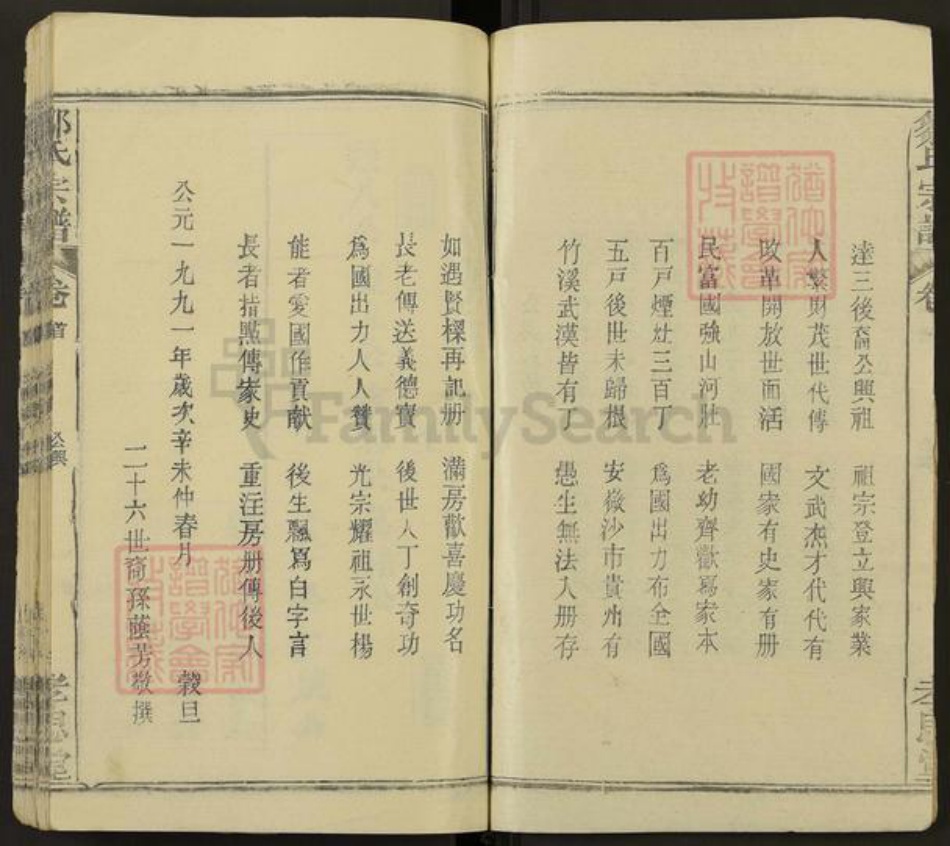 達三後裔公興祖 祖宗登立興家業
人繁財茂世代傳 文武杰才代代有
改革開放世面活 國家有史家有册
民富國強山河壯 老幼齊歡寫家本
百戸煙灶三百丁 爲國出力布全國
五戸後世未歸根 安徽沙市貴州有
竹溪武漢皆有丁 愚生無法入册存
如遇賢樑再記册 滿房歡喜慶功名
長老傳送義德寶 後世人丁創奇功
爲國出力人人贊 光宗耀祖永世楊
能者愛國作貢献 後生飄寫白字言
長者指點傳家史 重注房册傳後人
公元一九九一年歲次辛未仲春月 穀旦
二十六世裔孫蔭芳敬撰
氏宗譜
卷首
公興
FamilySearch